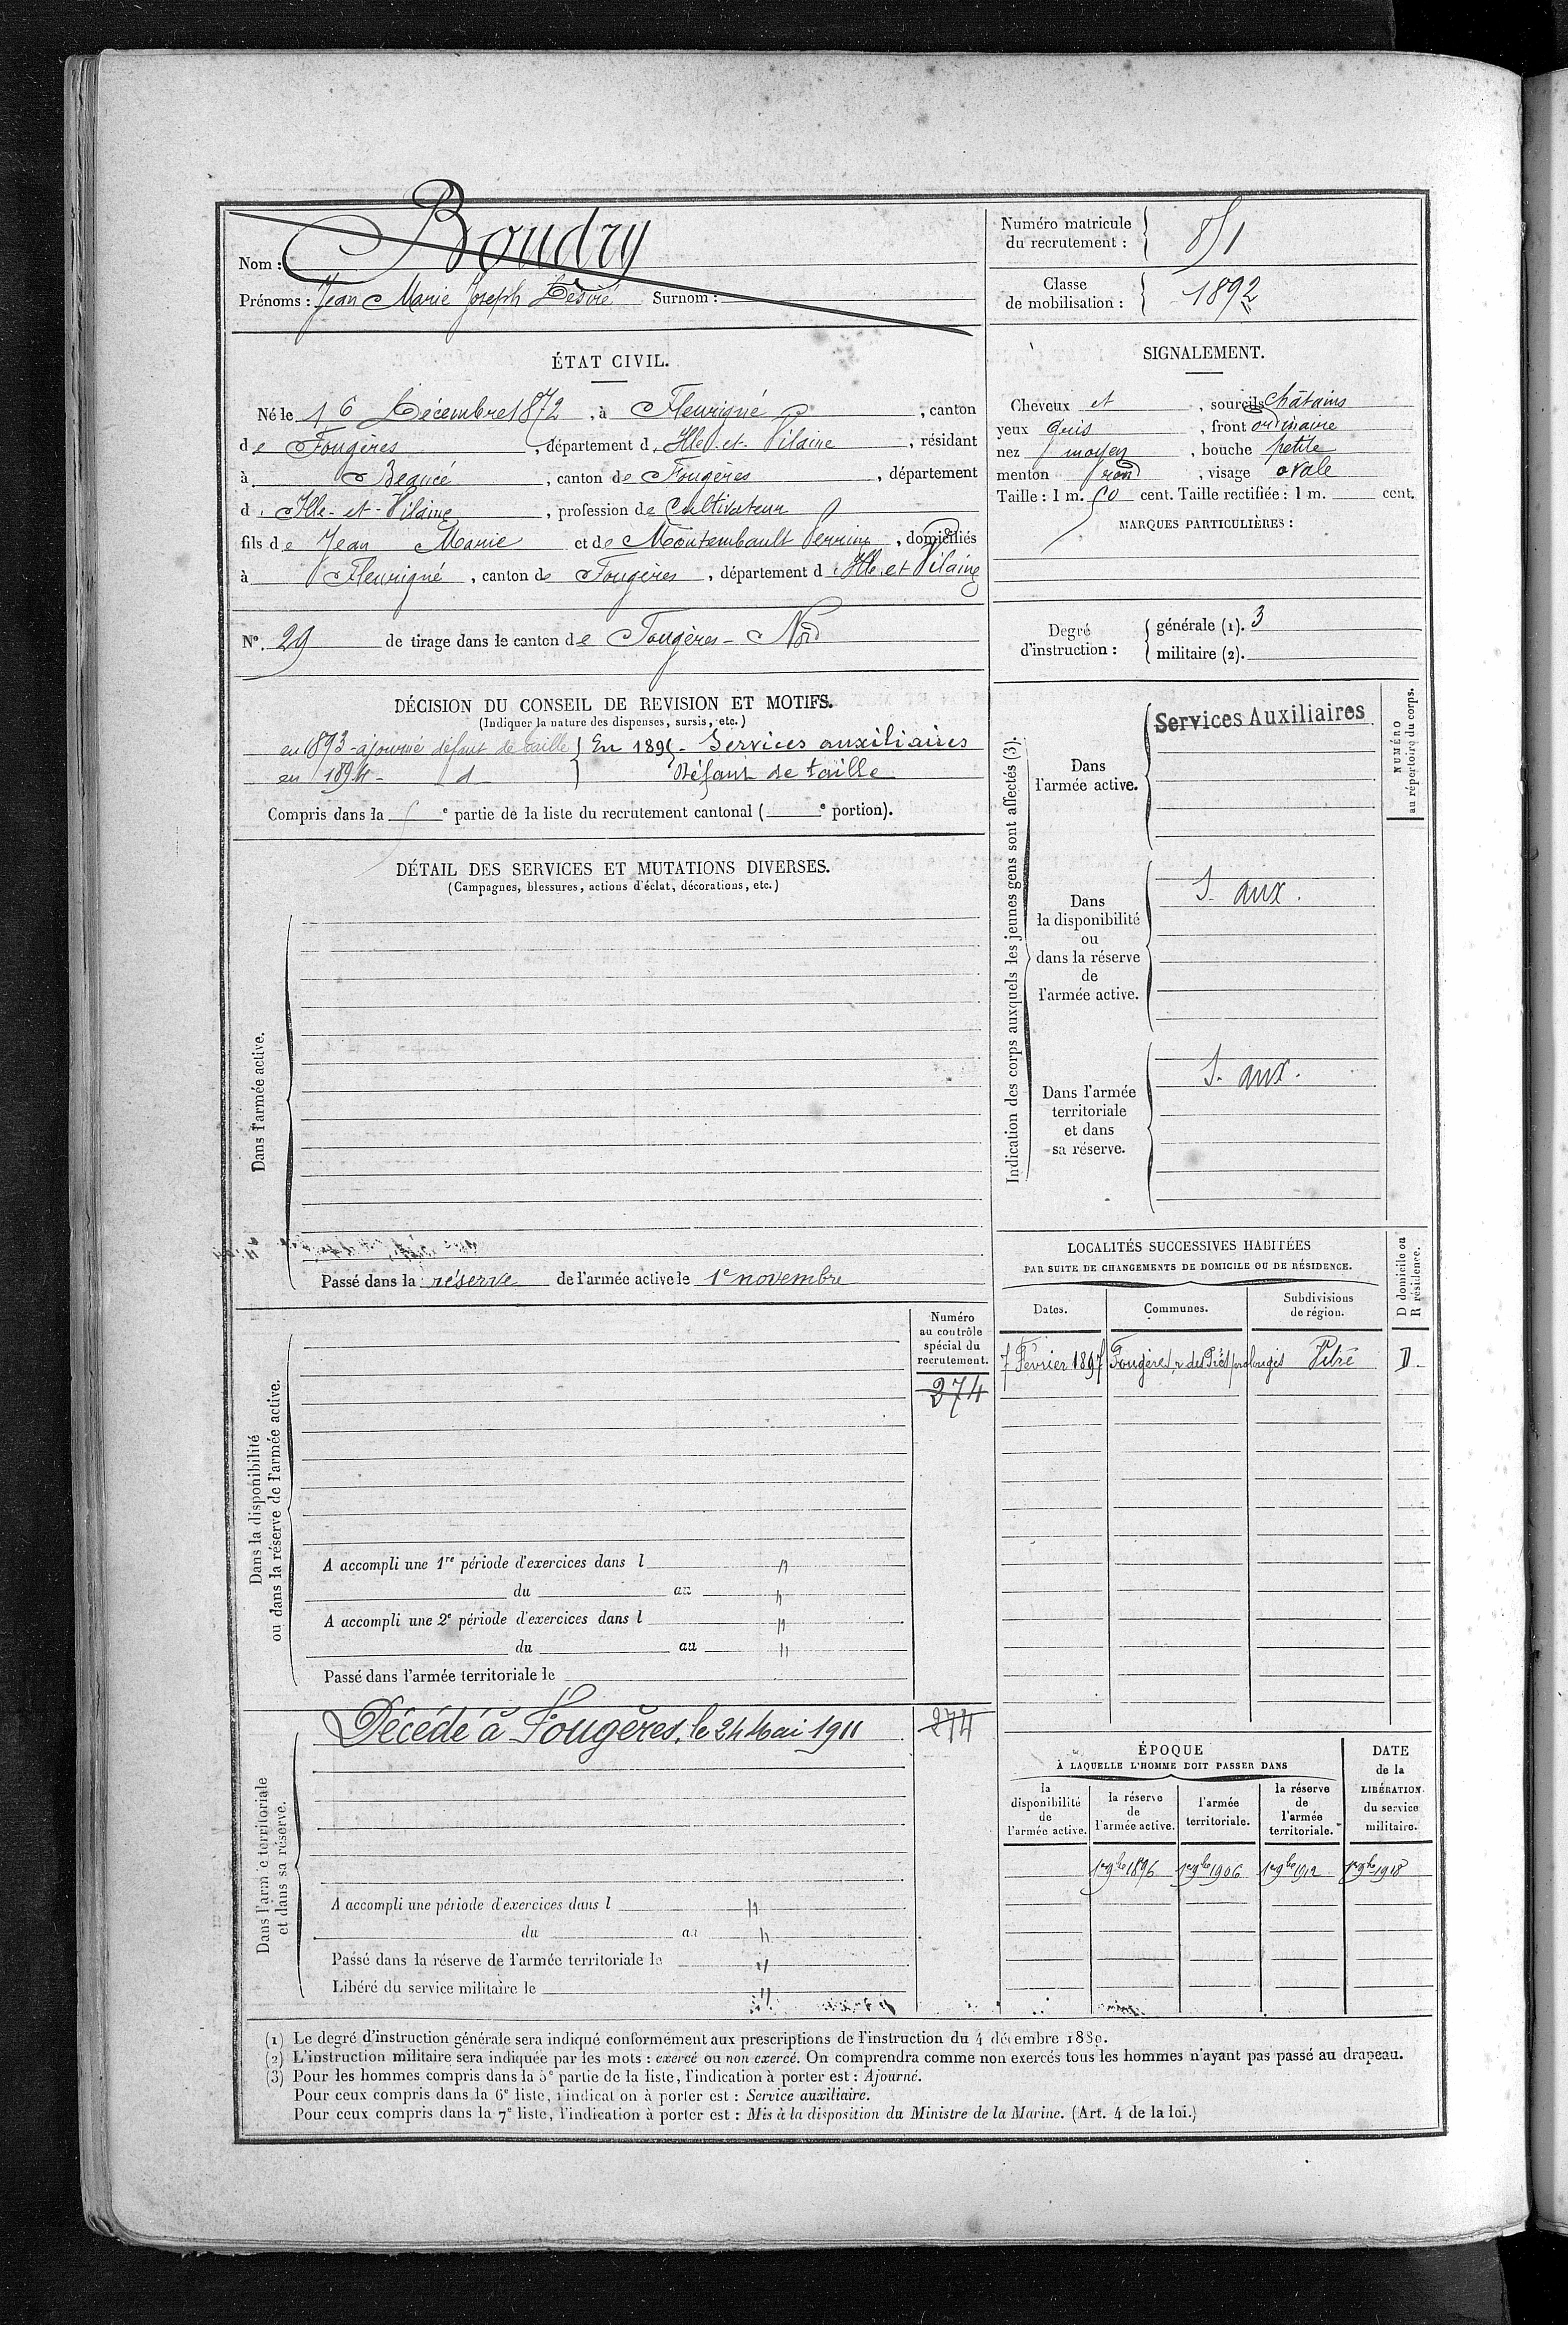 Nom : Boudry
Prénoms : Jean Marie Joseph Désiré Surnom :
Numéro matricule du recrutement : 851
Classe de mobilisation : 1892
ÉTAT CIVIL.
Né le 16 Décembre 1872, à Fleurigné, canton
de Fougères, département d'Ille-et-Vilaine, résidant
à Beaucé, canton de Fougères, département
d'Ille-et-Vilaine, profession de Cultivateur
fils de Jean Marie et de Montembault Perrine, domiciliés
à Fleurigné, canton de Fougères, département d'Ille et Vilaine
N° 29 de tirage dans le canton de Fougères-Nord
SIGNALEMENT.
Cheveux et, sourcils châtains
yeux gris, front ordinaire
nez moyen, bouche petite
menton rond, visage ovale
Taille : 1 m. 50 cent. Taille rectifiée : 1 m. cent.
MARQUES PARTICULIÈRES :
Degré d'instruction : générale (1). 3
militaire (2).
DÉCISION DU CONSEIL DE REVISION ET MOTIFS.
(Indiquer la nature des dispenses, sursis, etc.)
en 1893 - ajourné défaut de taille } En 1895 - Services auxiliaires
en 1894 - d } Défaut de taille
Compris dans la e partie de la liste du recrutement cantonal ( e portion).
DÉTAIL DES SERVICES ET MUTATIONS DIVERSES.
(Campagnes, blessures, actions d'éclat, décorations, etc.)
Dans l'armée active.
Passé dans la réserve de l'armée active le 1e novembre
Indication des corps auxquels les jeunes gens sont affectés (3).
NUMÉRO au répertoire du corps.
Dans l'armée active.
Services Auxiliaires
Dans la disponibilité ou dans la réserve de l'armée active.
S. aux.
Dans l'armée territoriale et dans sa réserve.
S. aux.
LOCALITÉS SUCCESSIVES HABITÉES
PAR SUITE DE CHANGEMENTS DE DOMICILE OU DE RÉSIDENCE.
D domicile ou R résidence.
Dates. Communes. Subdivisions de région.
7 Février 1897 Fougères, r. des Prés prolongés Vitré D.
Dans la disponibilité ou dans la réserve de l'armée active.
Numéro au contrôle spécial du recrutement.
274
A accompli une 1re période d'exercices dans l "
du au "
A accompli une 2e période d'exercices dans l "
du au "
Passé dans l'armée territoriale le
Dans l'armée territoriale et dans sa réserve.
Décédé à Fougères, le 24 Mai 1911
274
A accompli une période d'exercices dans l "
du au "
Passé dans la réserve de l'armée territoriale le "
Libéré du service militaire le "
ÉPOQUE
À LAQUELLE L'HOMME DOIT PASSER DANS
DATE de la LIBÉRATION du service militaire.
la disponibilité de l'armée active. la réserve de l'armée active. l'armée territoriale. la réserve de l'armée territoriale.
1er 9bre 1896 1er 9bre 1906 1er 9bre 1912 1er 9bre 1918
(1) Le degré d'instruction générale sera indiqué conformément aux prescriptions de l'instruction du 4 décembre 1889.
(2) L'instruction militaire sera indiquée par les mots : exercé ou non exercé. On comprendra comme non exercés tous les hommes n'ayant pas passé au drapeau.
(3) Pour les hommes compris dans la 5e partie de la liste, l'indication à porter est : Ajourné.
Pour ceux compris dans la 6e liste, l'indication à porter est : Service auxiliaire.
Pour ceux compris dans la 7e liste, l'indication à porter est : Mis à la disposition du Ministre de la Marine. (Art. 4 de la loi.)